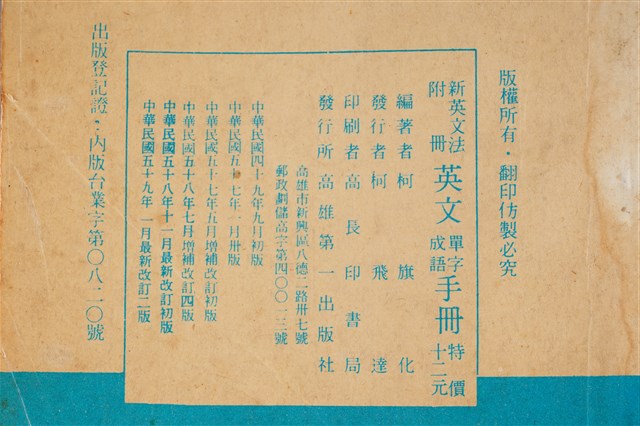 版權所有．翻印仿製必究
新英文法附冊 英文單字成語手冊 特價十二元
編著者 柯旗化
發行者 柯飛達
印刷者 高長印書局
發行所 高雄第一出版社
高雄市新興區八德二路卅七號
郵政劃儲高字第四〇〇一三號
中華民國四十九年九月初版
中華民國五十七年一月卅版
中華民國五十七年五月增補改訂初版
中華民國五十八年七月增補改訂四版
中華民國五十八年十一月最新改訂初版
中華民國五十九年一月最新改訂二版
出版登記證：內版台業字第〇八二〇號